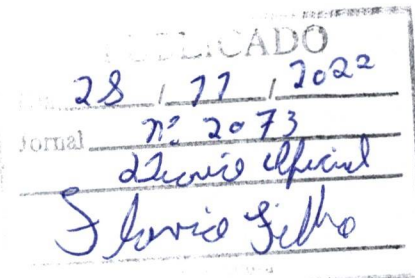 PUBLICADO
28 / 11 / 2022
Jornal nº 2073
Diário Oficial
Flavio Filho